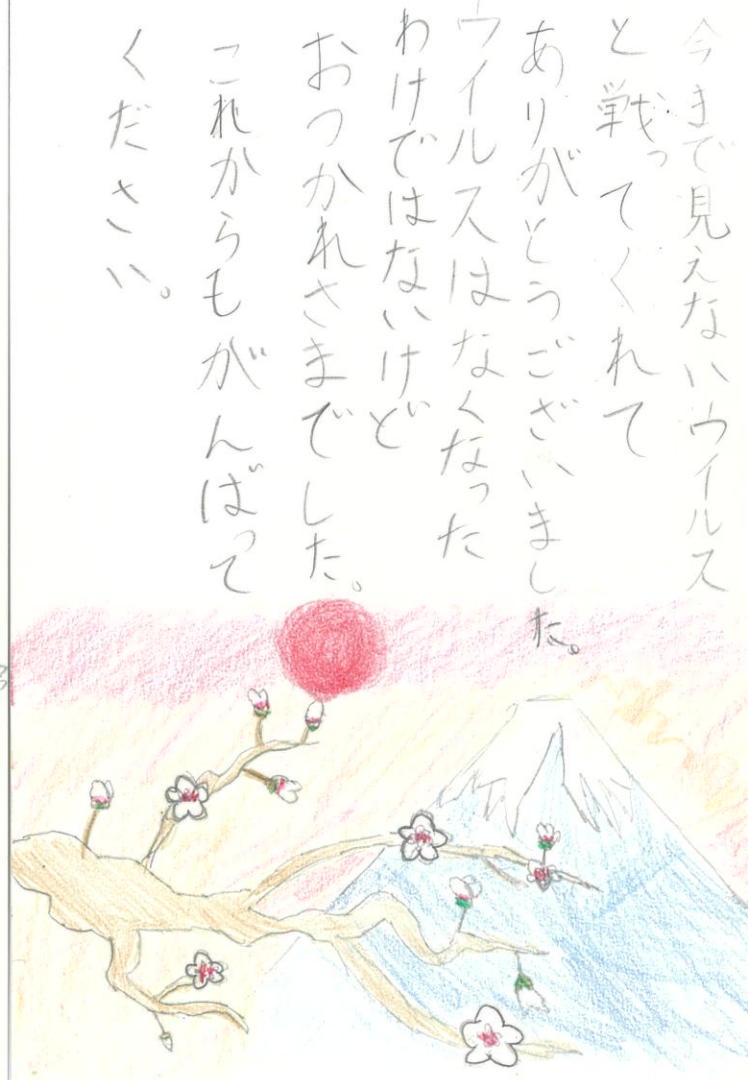 今まで見えないウイルス
と戦ってくれて
ありがとうございました。
ウイルスはなくなった
わけではないけど
おつかれさまでした。
これからもがんばって
ください。